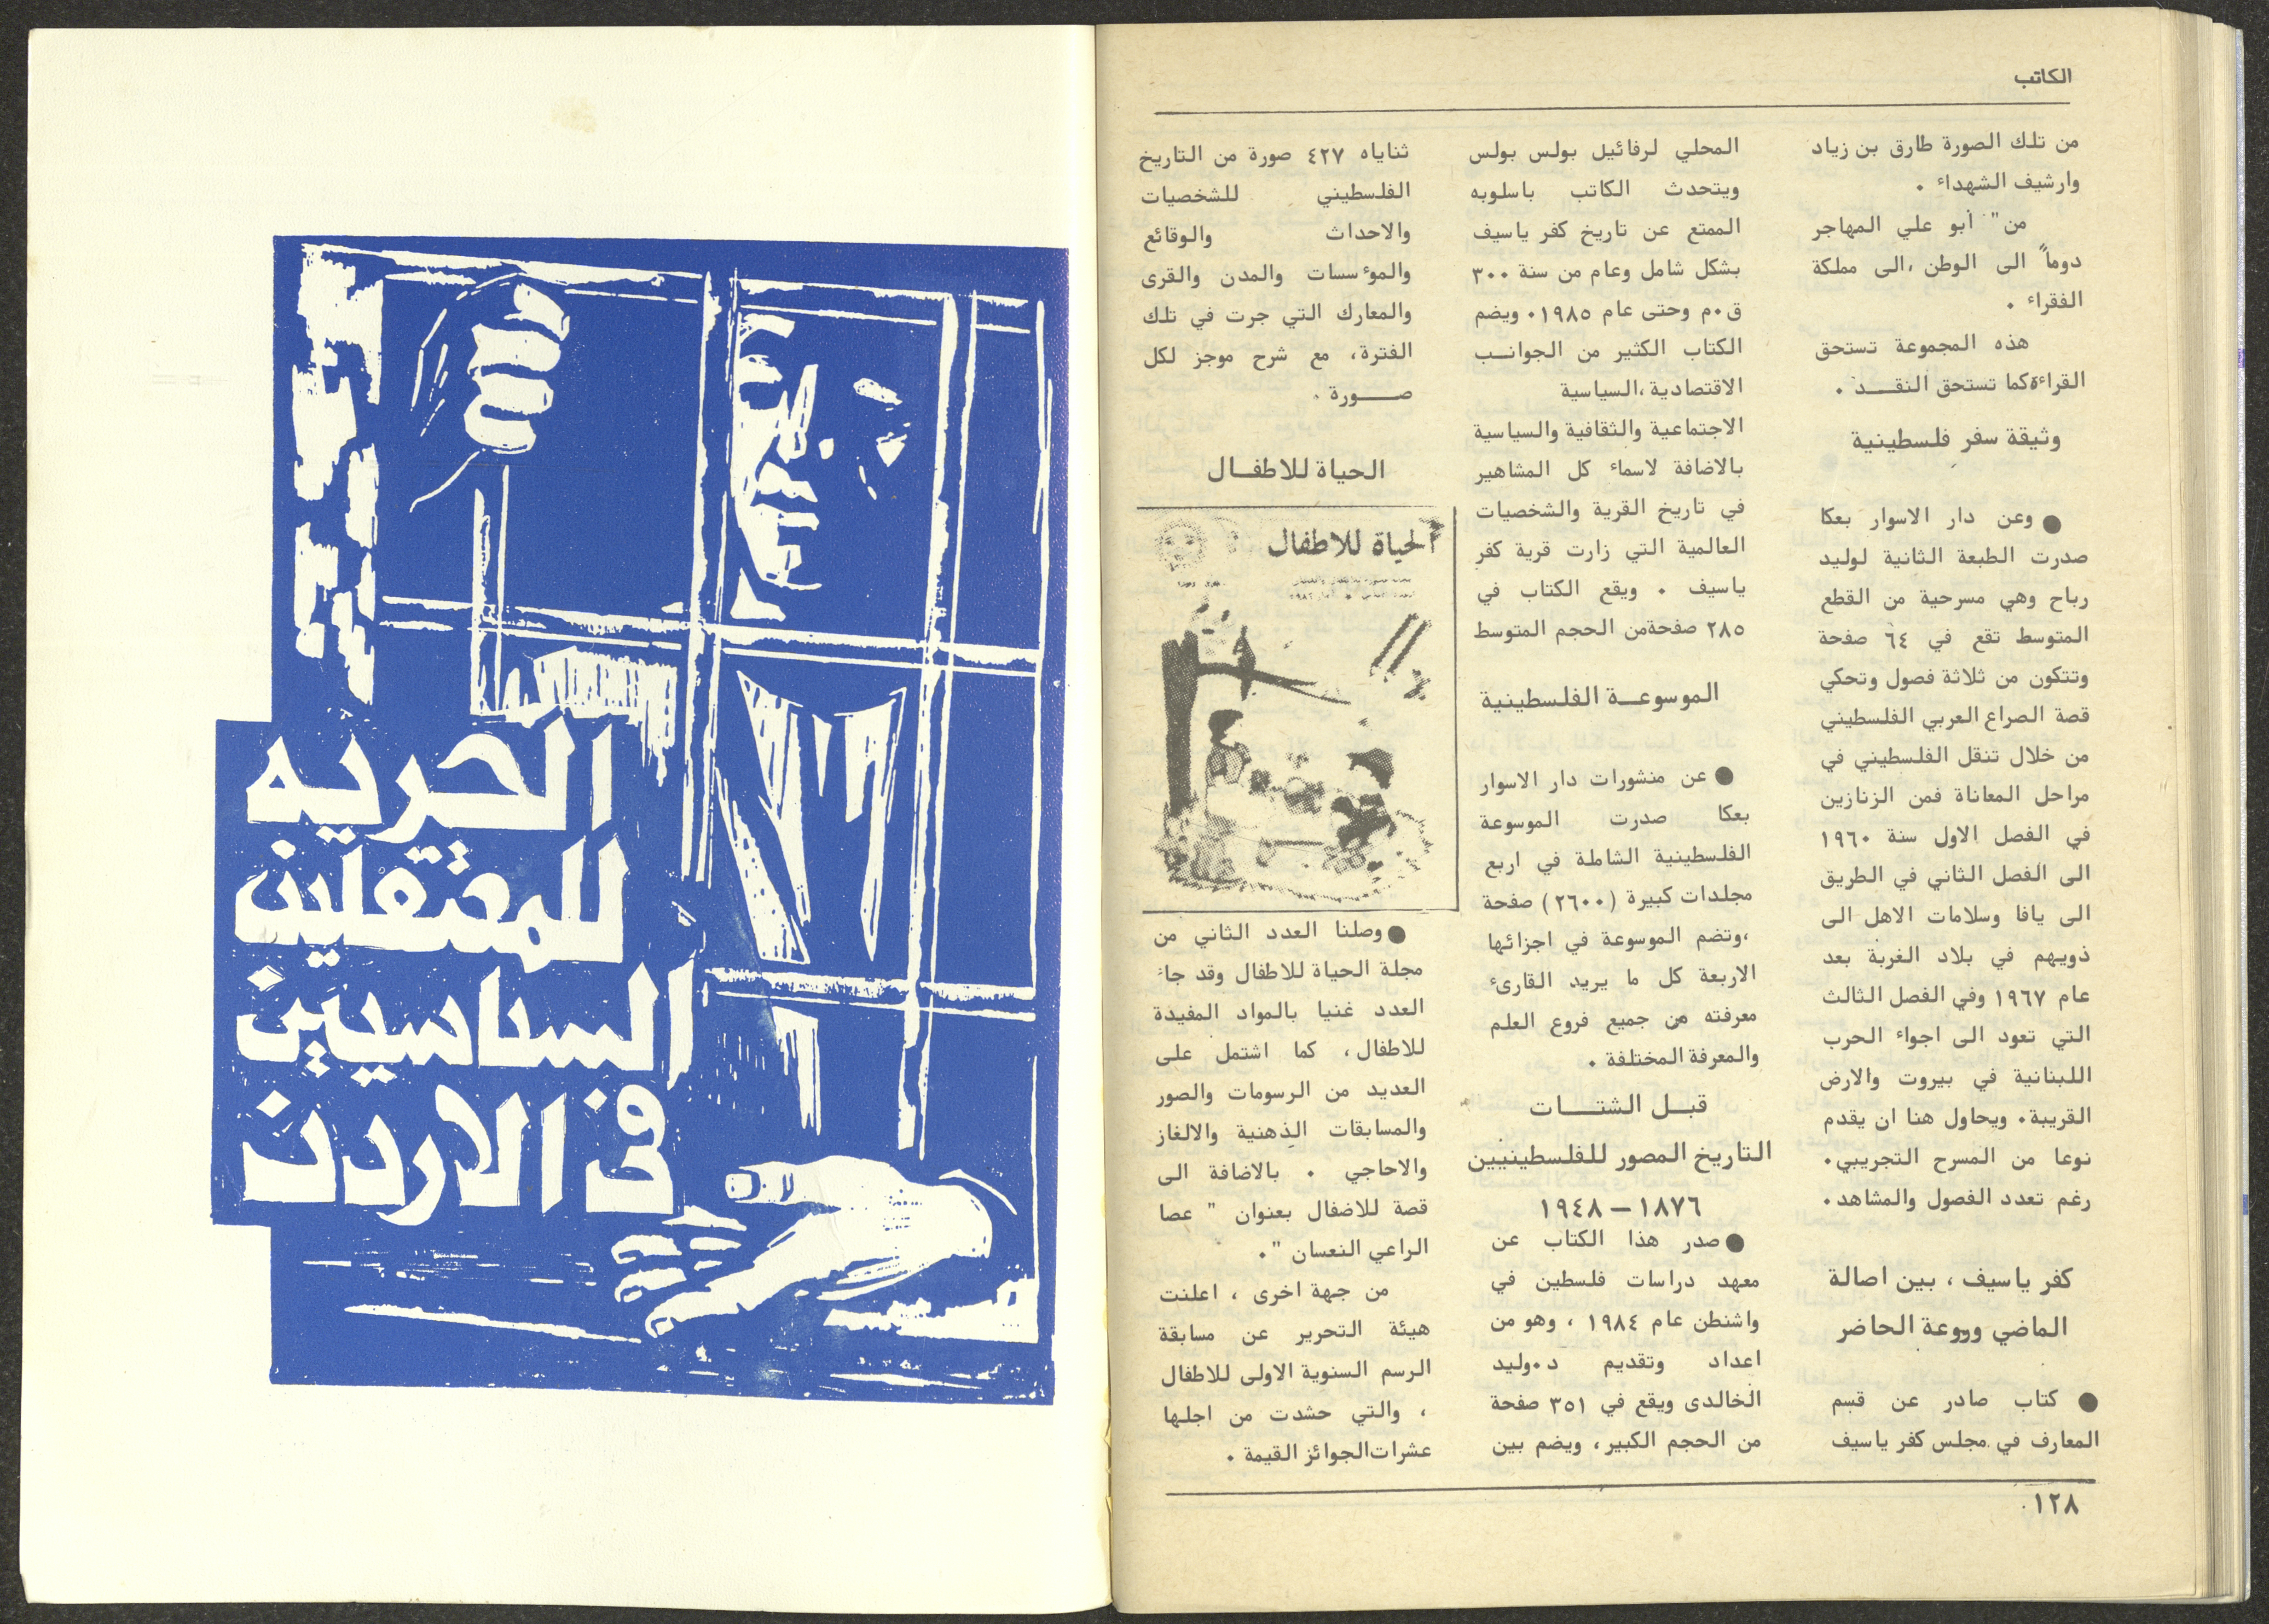 الكاتب
من تلك الصورة طارق بن زياد
وارشيف الشهداء .
من" أبو علي المهاجر
دوماً الى الوطن ،الى مملكة
الفقراء .
هذه المجموعة تستحق
القراءة كما تستحق النقــد .
وثيقة سفر فلسطينية
● وعن دار الاسوار بعكا
صدرت الطبعة الثانية لوليد
رباح وهي مسرحية من القطع
المتوسط تقع في ٦٤ صفحة
وتتكون من ثلاثة فصول وتحكي
قصة الصراع العربي الفلسطيني
من خلال تنقل الفلسطيني في
مراحل المعاناة فمن الزنازين
في الفصل الاول سنة ١٩٦٠
الى الفصل الثاني في الطريق
الى يافا وسلامات الاهل الى
ذويهم في بلاد الغربة بعد
عام ١٩٦٧ وفي الفصل الثالث
التي تعود الى اجواء الحرب
اللبنانية في بيروت والارض
القريبة. ويحاول هنا ان يقدم
نوعا من المسرح التجريبي.
رغم تعدد الفصول والمشاهد.
كفر ياسيف ، بين اصالة
الماضي وروعة الحاضر
● كتاب صادر عن قسم
المعارف في مجلس كفر ياسيف
المحلي لرفائيل بولس بولس
ويتحدث الكاتب باسلوبه
الممتع عن تاريخ كفر ياسيف
بشكل شامل وعام من سنة ٣٠٠
ق.م وحتى عام ١٩٨٥. ويضم
الكتاب الكثير من الجوانــب
الاقتصادية ،السياسية
الاجتماعية والثقافية والسياسية
بالاضافة لاسماء كل المشاهير
في تاريخ القرية والشخصيات
العالمية التي زارت قرية كفر
ياسيف . ويقع الكتاب في
٢٨٥ صفحةمن الحجم المتوسط
الموسوعــة الفلسطينية
● عن منشورات دار الاسوار
بعكا صدرت الموسوعة
الفلسطينية الشاملة في اربع
مجلدات كبيرة (٢٦٠٠) صفحة
،وتضم الموسوعة في اجزائها
الاربعة كل ما يريد القارئ
معرفته من جميع فروع العلم
والمعرفة المختلفة .
قبــل الشتـــات
التاريخ المصور للفلسطينيين
١٨٧٦ – ١٩٤٨
● صدر هذا الكتاب عن
معهد دراسات فلسطين في
واشنطن عام ١٩٨٤ ، وهو من
اعداد وتقديم د.وليد
الخالدى ويقع في ٣٥١ صفحة
من الحجم الكبير، ويضم بين
ثناياه ٤٢٧ صورة من التاريخ
الفلسطيني للشخصيات
والاحداث والوقائع
والمؤسسات والمدن والقرى
والمعارك التي جرت في تلك
الفترة، مع شرح موجز لكل
صـــورة .
الحياة للاطفــال
الحياة للاطفال
● وصلنا العدد الثاني من
مجلة الحياة للاطفال وقد جاء
العدد غنيا بالمواد المفيدة
للاطفال، كما اشتمل على
العديد من الرسومات والصور
والمسابقات الذهنية والالغاز
والاحاجي . بالاضافة الى
قصة للاضفال بعنوان " عصا
الراعي النعسان ".
من جهة اخرى ، اعلنت
هيئة التحرير عن مسابقة
الرسم السنوية الاولى للاطفال
، والتي حشدت من اجلها
عشرات الجوائز القيمة .
١٢٨
الحريه
للمعتقلين
السياسيين
في الاردن